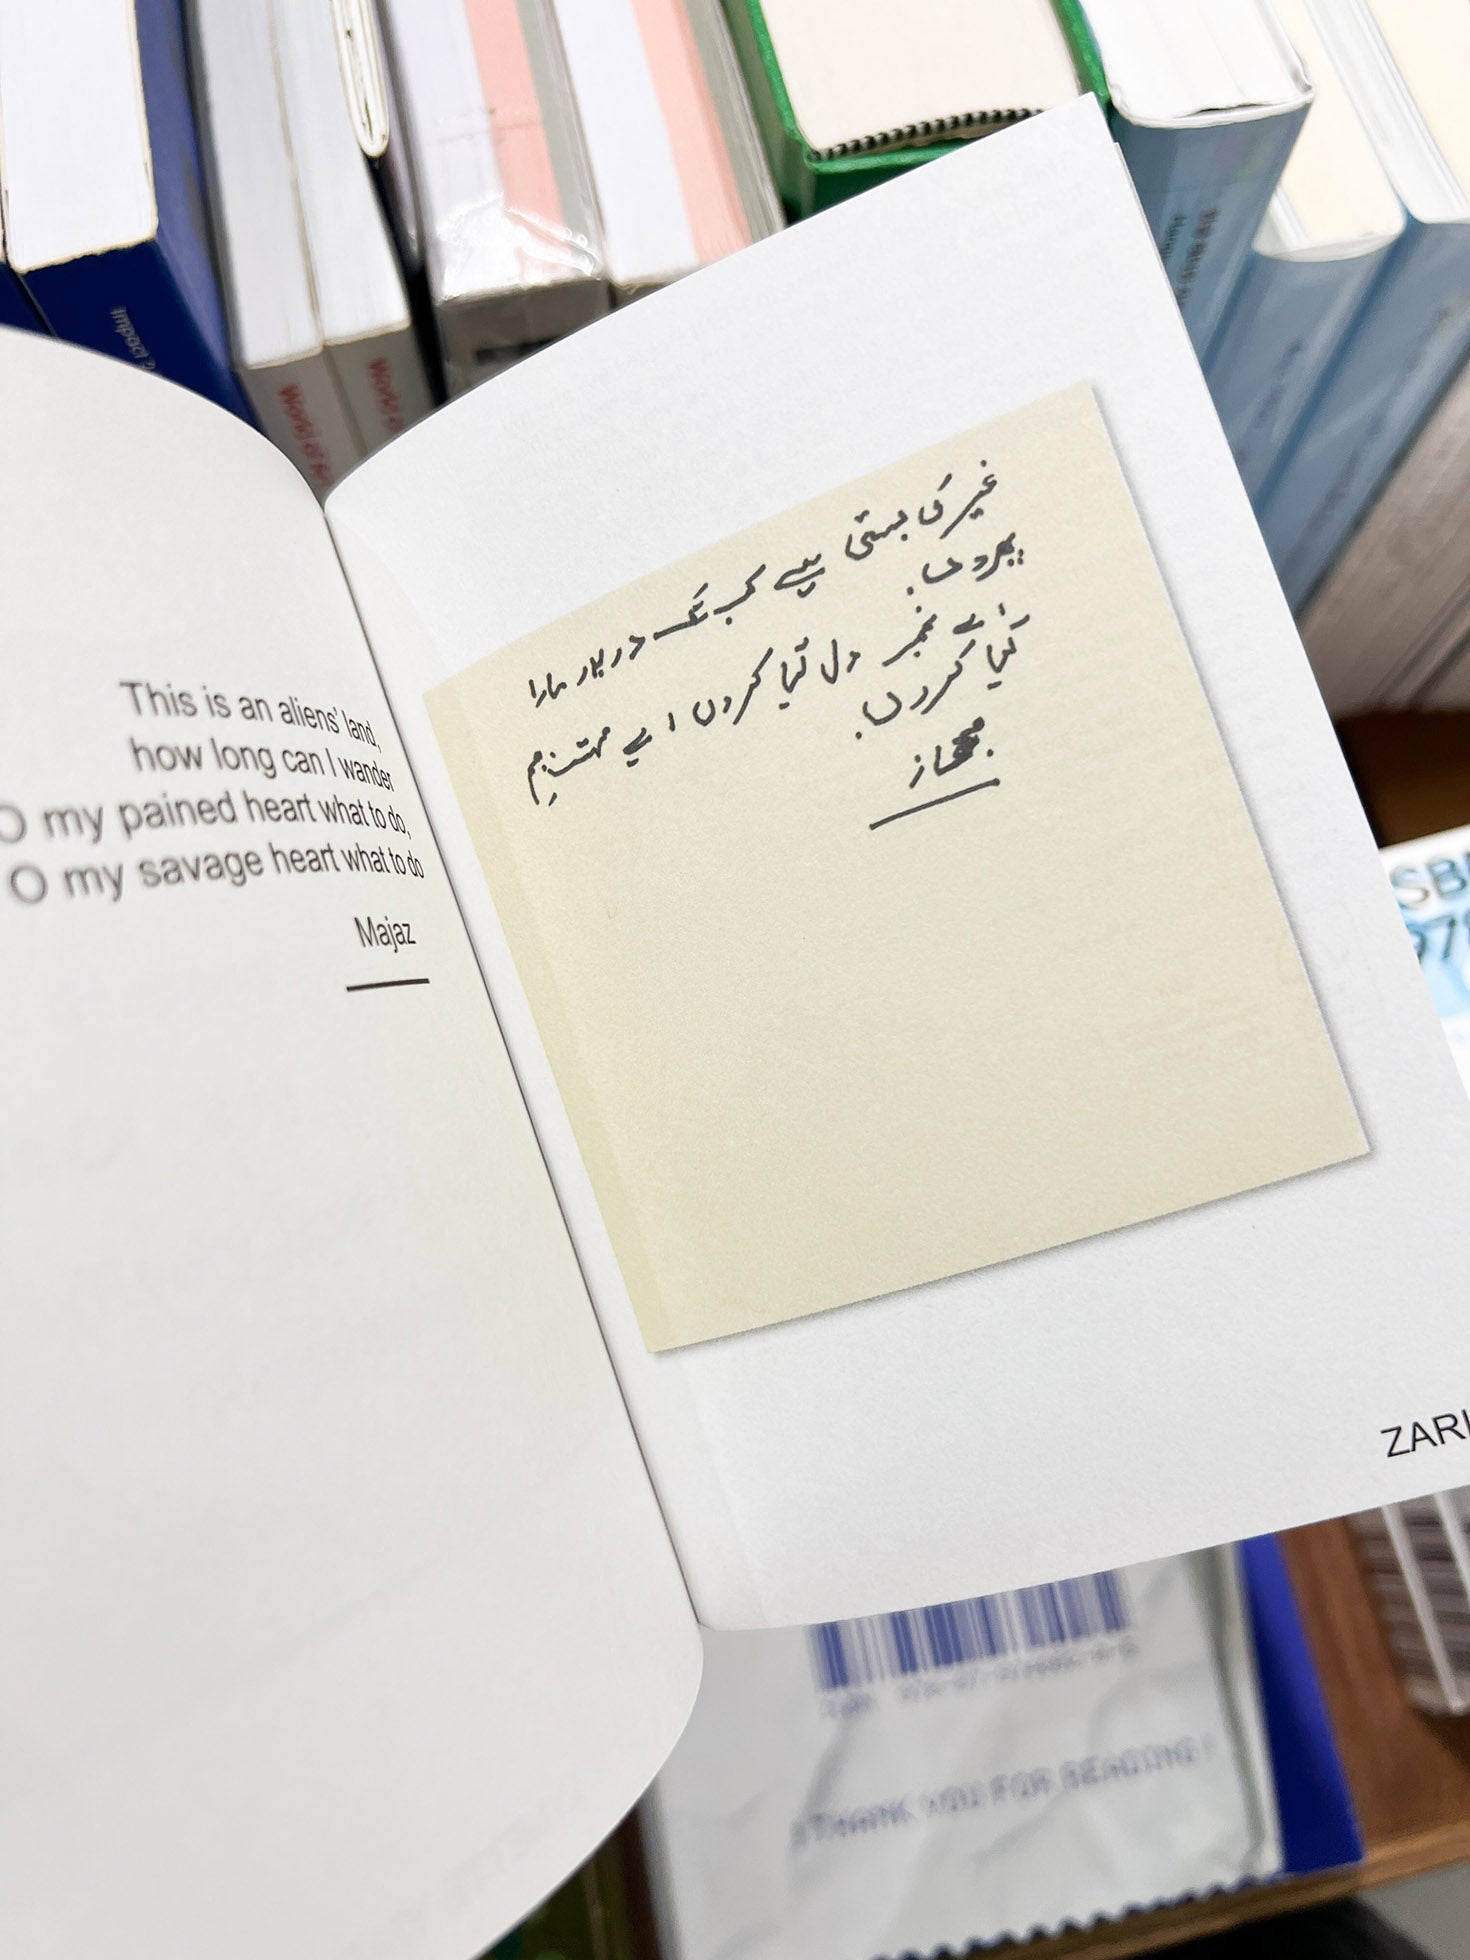 This is an aliens' land,
how long can I wander
O my pained heart what to do,
O my savage heart what to do
Majaz
غیر کی بستی ہے کب تک در بدر مارا
پھروں
اے غم دل کیا کروں اے
کیا کروں
مجاز
ZARI
World of
World of
THANK YOU FOR READING!